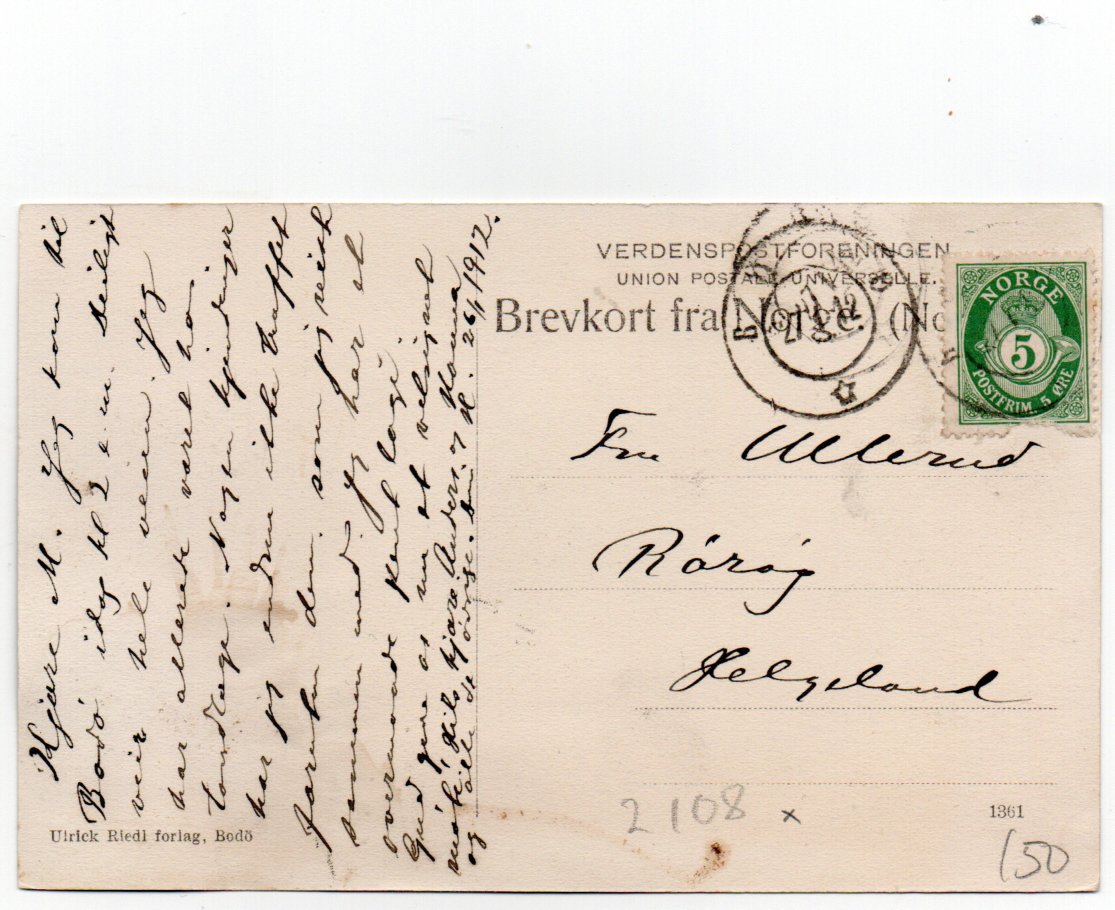 Kjære M. Jeg kom til
Bodö idag kl 2 e.m. deiligt
veir hele veien. Jeg
har allerede været hos
tandlæge. Nogen kjendinger
har jeg endnu ikke truffet
foruten dem, som jeg reiste
sammen med. Jeg har et
overmaade pent logi.
Gud give os nu et velsignet
møte! Hils kjære Anders. og Mama
og alle de
26/1 1912.
Ulrick Riedl forlag, Bodö
VERDENSPOSTFORENINGEN
UNION POSTALE UNIVERSELLE.
Brevkort fra Norge. (No
27 I 12
NORGE
5
POSTFRIM. 5 ØRE
Fru Ullerud
Rörög
Helgeland
2108 x
1361
150